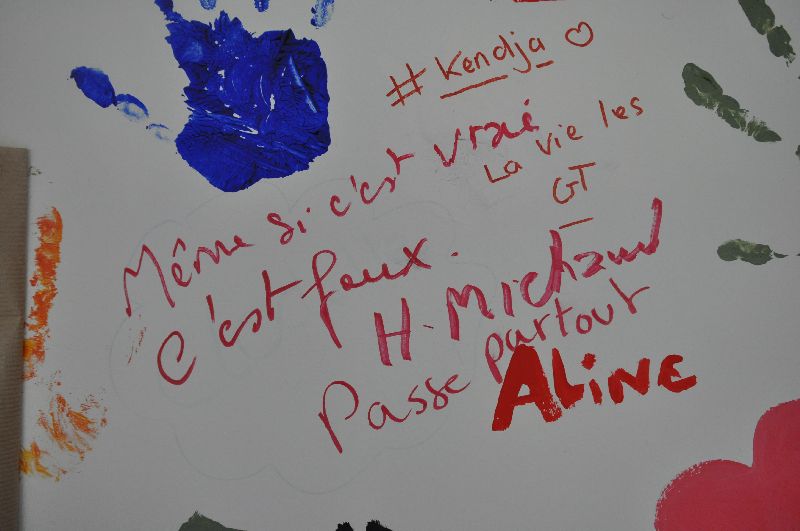 #Kendja
La vie les
GT
Même si c'est vrai
c'est faux.
H. Michaud
Passe partout
ALiNE